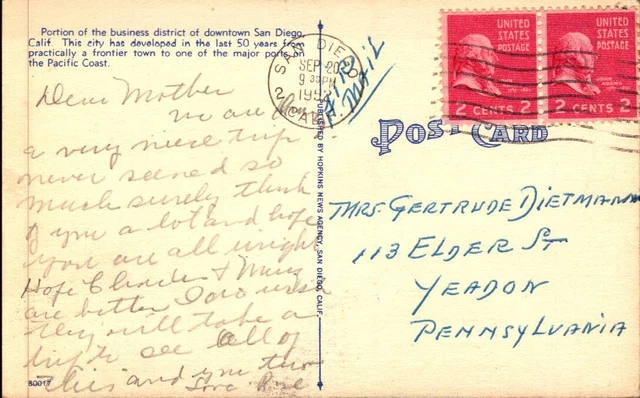 Portion of the business district of downtown San Diego,
Calif. This city has developed in the last 50 years from
practically a frontier town to one of the major ports on
the Pacific Coast.
Dear Mother
we are
a very nice trip
never seened so
much surely think
of you a lot and hope
you are all wright
Hope Charlie & Mary
are better I do wish
they will take a
trip to see all of
this and you two
Love
80017
PUBLISHED BY HOPKINS NEWS AGENCY, SAN DIEGO, CALIF.
SAN DIEGO
SEP 20
9 PM
CALIF.
AIR
MAIL
UNITED
STATES
POSTAGE
2 CENTS 2
UNITED
STATES
POSTAGE
2 CENTS 2
POST CARD
MRS. GERTRUDE DIETMANN
113 ELDER ST
YEADON
PENNSYLVANIA